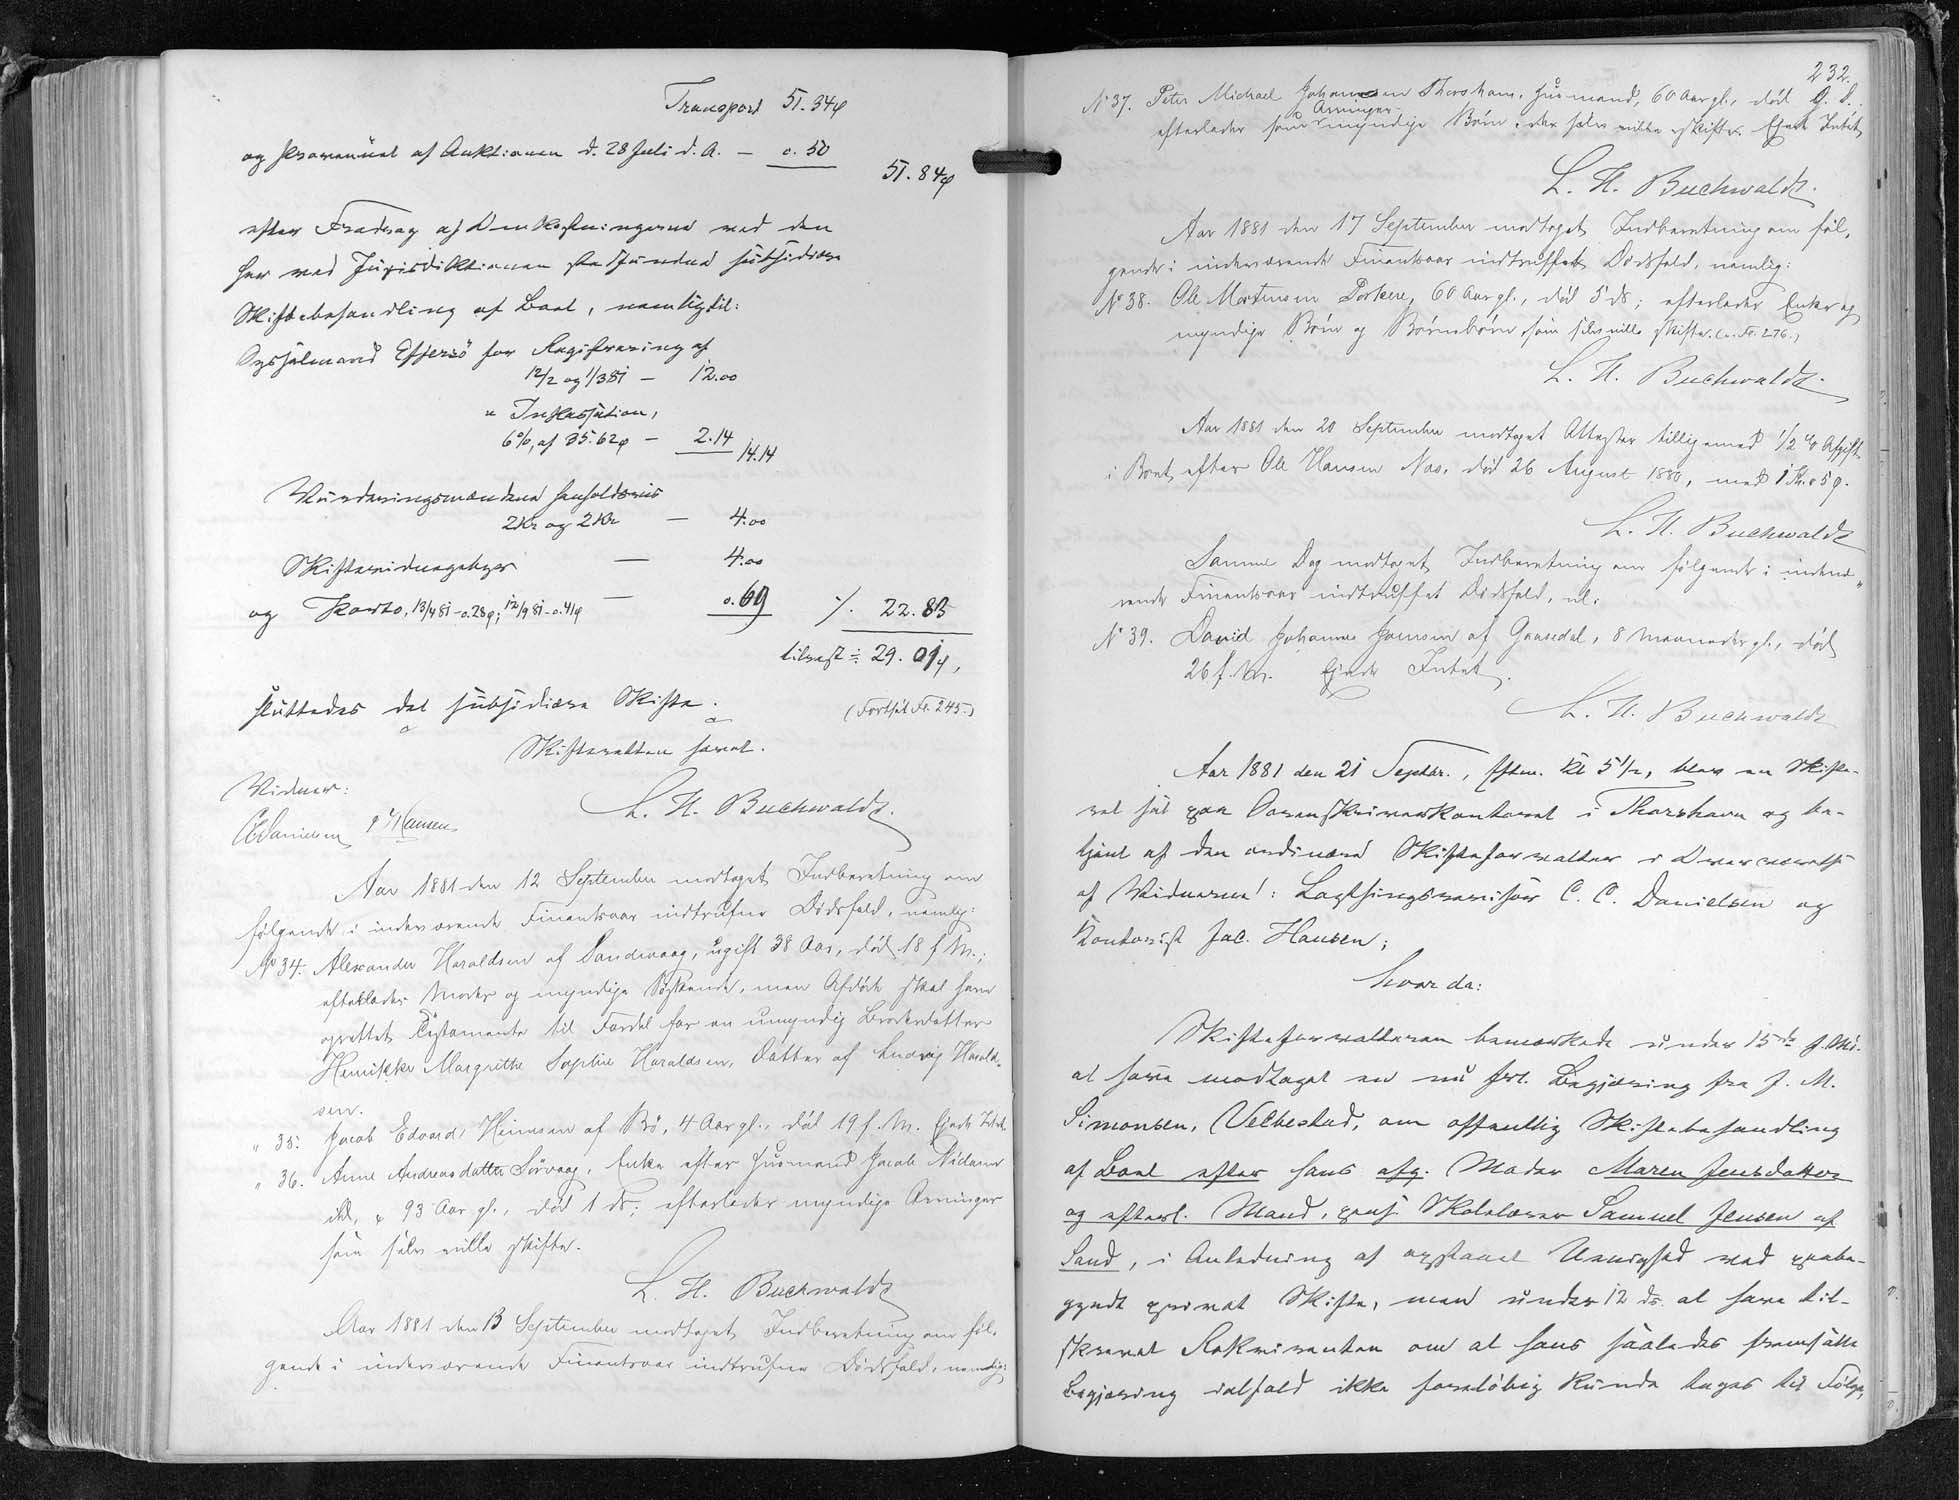 Transport 51.34ø
og Provenuet af Auktionen d. 28 Juli d. A. — 0.50
51.84ø
efter Fradrag af Omkostningerne ved den
her ved Jurisdiktionen stedfundne subsidiære
Skiftebehandling af Boet, nemlig til:
Sysselmand Effersö for Registrering af
12/2 og 1/3 81 — 12.00
" Inkassation,
6%, af 35.62ø — 2.14
14.14
Vurderingsmændene henholdsvis
2Kr og 2Kr — 4.00
Skiftevidnegebyr — 4.00
og Porto, 13/4 81 - 0.28ø; 12/9 81 - 0.41ø — 0.69
./. 22.83
tilrest = 29.01ø,
sluttedes det subsidiære Skifte.
(Fortsat Fr. 245.)
Skifteretten hævet.
Vidner:
L. H. Buchwaldt.
C Danielsen J Hansen
Aar 1881 den 12 September modtoges Indberetning om
følgende i indeværende Finantsaar indtrufne Dødsfald, nemlig:
No 34. Alexander Haraldsen af Sandevaag, ugift 38 Aar, død 18 f. M.;
efterlader Moder og myndige Søskende, men Afdøde skal have
oprettet Testamente til Fordel for en umyndig Broderdatter
Henrikke Margrethe Sophie Haraldsen, Datter af Ludvig Harald-
sen.
" 35. Jacob Edvard Heinesen af Bö, 4 Aar gl., død 19 f. M. Ejede Intet.
" 36. Anne Andreasdatter Sörvaag, Enke efter Husmand Jacob
93 Aar gl., død 1 ds; efterlader myndige Arvinger
som selv ville skifte.
L. H. Buchwaldt
Aar 1881 den 13 September modtoges Indberetning om føl-
gende i indeværende Finantsaar indtrufne Dødsfald, nemlig:
232.
No 37. Peter Michael Johannesen Thorshavn, Husmand, 60 Aar gl., død
Arvinger
efterlader som myndige Børn, der selv ville skifte. Ejede Intet
L. H. Buchwaldt.
Aar 1881 den 17 September modtoges Indberetning om føl-
gende i indeværende Finantsaar indtruffet Dødsfald, nemlig:
No 38. Ole Mortensen Porkere, 60 Aar gl., død 5 ds; efterlader Enke og
myndige Börn og Börnebörn, som selv ville skifte. (v. Fr. 276.)
L. H. Buchwaldt.
Aar 1881 den 20 September modtoges Attester tilligemed 1/2 % Afgift
i Boet efter Ole Hansen Næs, død 26 August 1880, med
L. H. Buchwaldt
Samme Dag modtoges Indberetning om følgende i indevæ-
rende Finantsaar indtruffet Dødsfald, nl.
No 39. David Johannes Joensen af Gaasedal, 8 Maaneder gl., død
26 f. M. Ejede Intet.
L. H. Buchwaldt
Aar 1881 den 21 Septbr., Eftm. Kl 5 1/2, blev en Skifte-
ret sat paa Sorenskriverkontoret i Thorshavn og be-
tjent af den ordinære Skifteforvalter i Overværelse
af Vidnerne: Lagthingsrevisor C. C. Danielsen og
Kontorist Jac. Hansen;
hvor da:
Skifteforvalteren bemærkede under 15de f. Md.
at have modtaget en nu frl. Begjæring fra J. M.
Simonsen, Velbestad, om offentlig Skiftebehandling
af Boet efter hans afg. Moder Maren Jensdatter
og efterl. Mand, pens. Skolelærer Samuel Jensen af
Sand, i Anledning af opstaaet Uenighed ved paabe-
gyndt privat Skifte, men under 12 ds. at have til-
skrevet Rekvirenten om at hans saaledes fremsatte
Begjæring ialfald ikke foreløbig kunde tages til Følge,